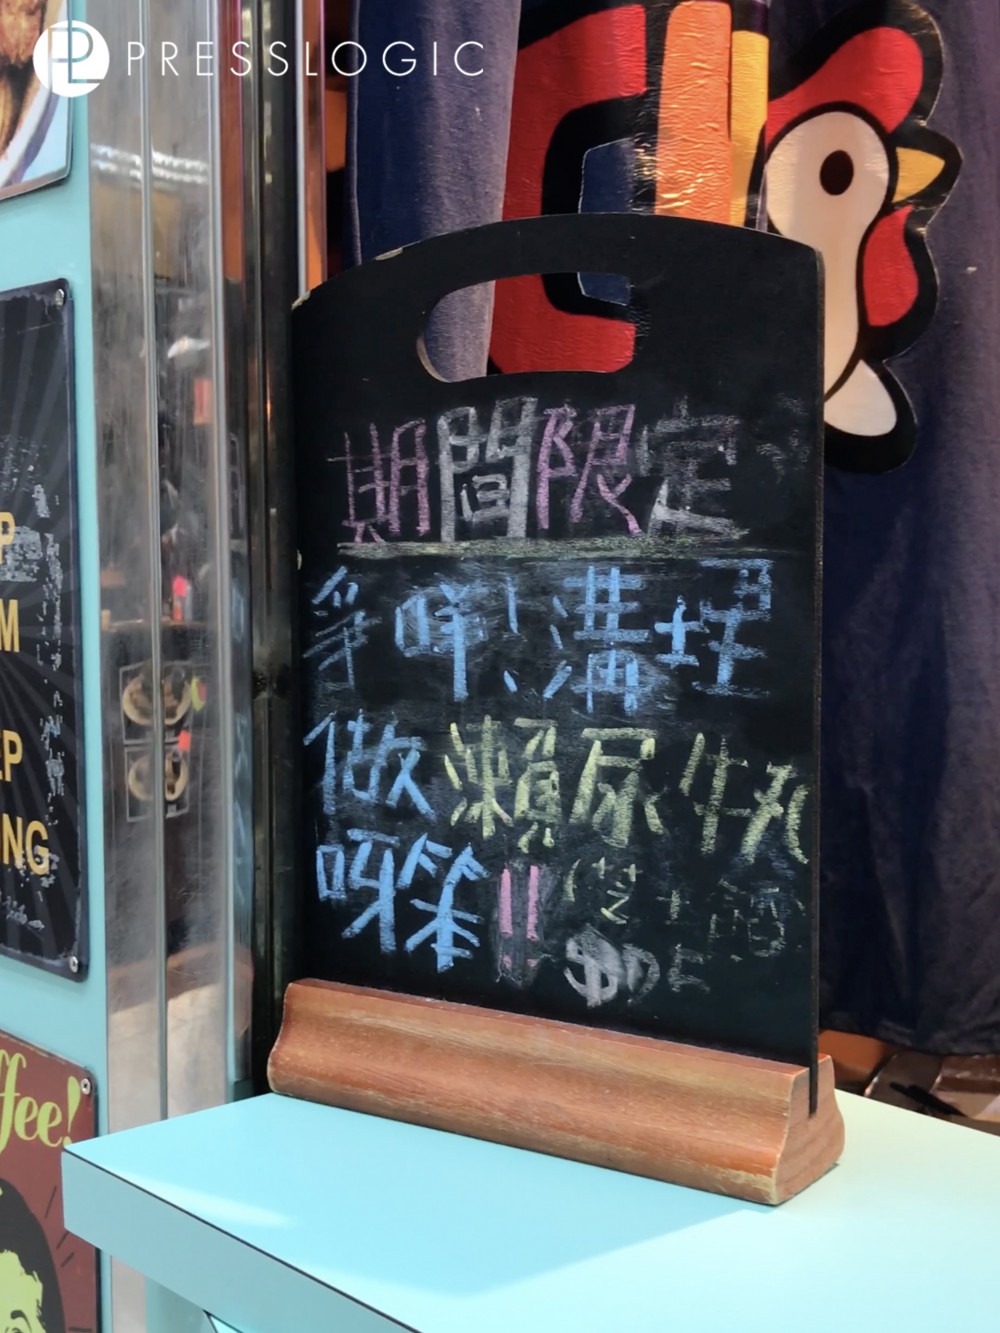 PRESSLOGIC
期間限定
爭咩!溝埋
做瀨尿牛丸
呀笨!!
P
M
EP
ING
ffee!